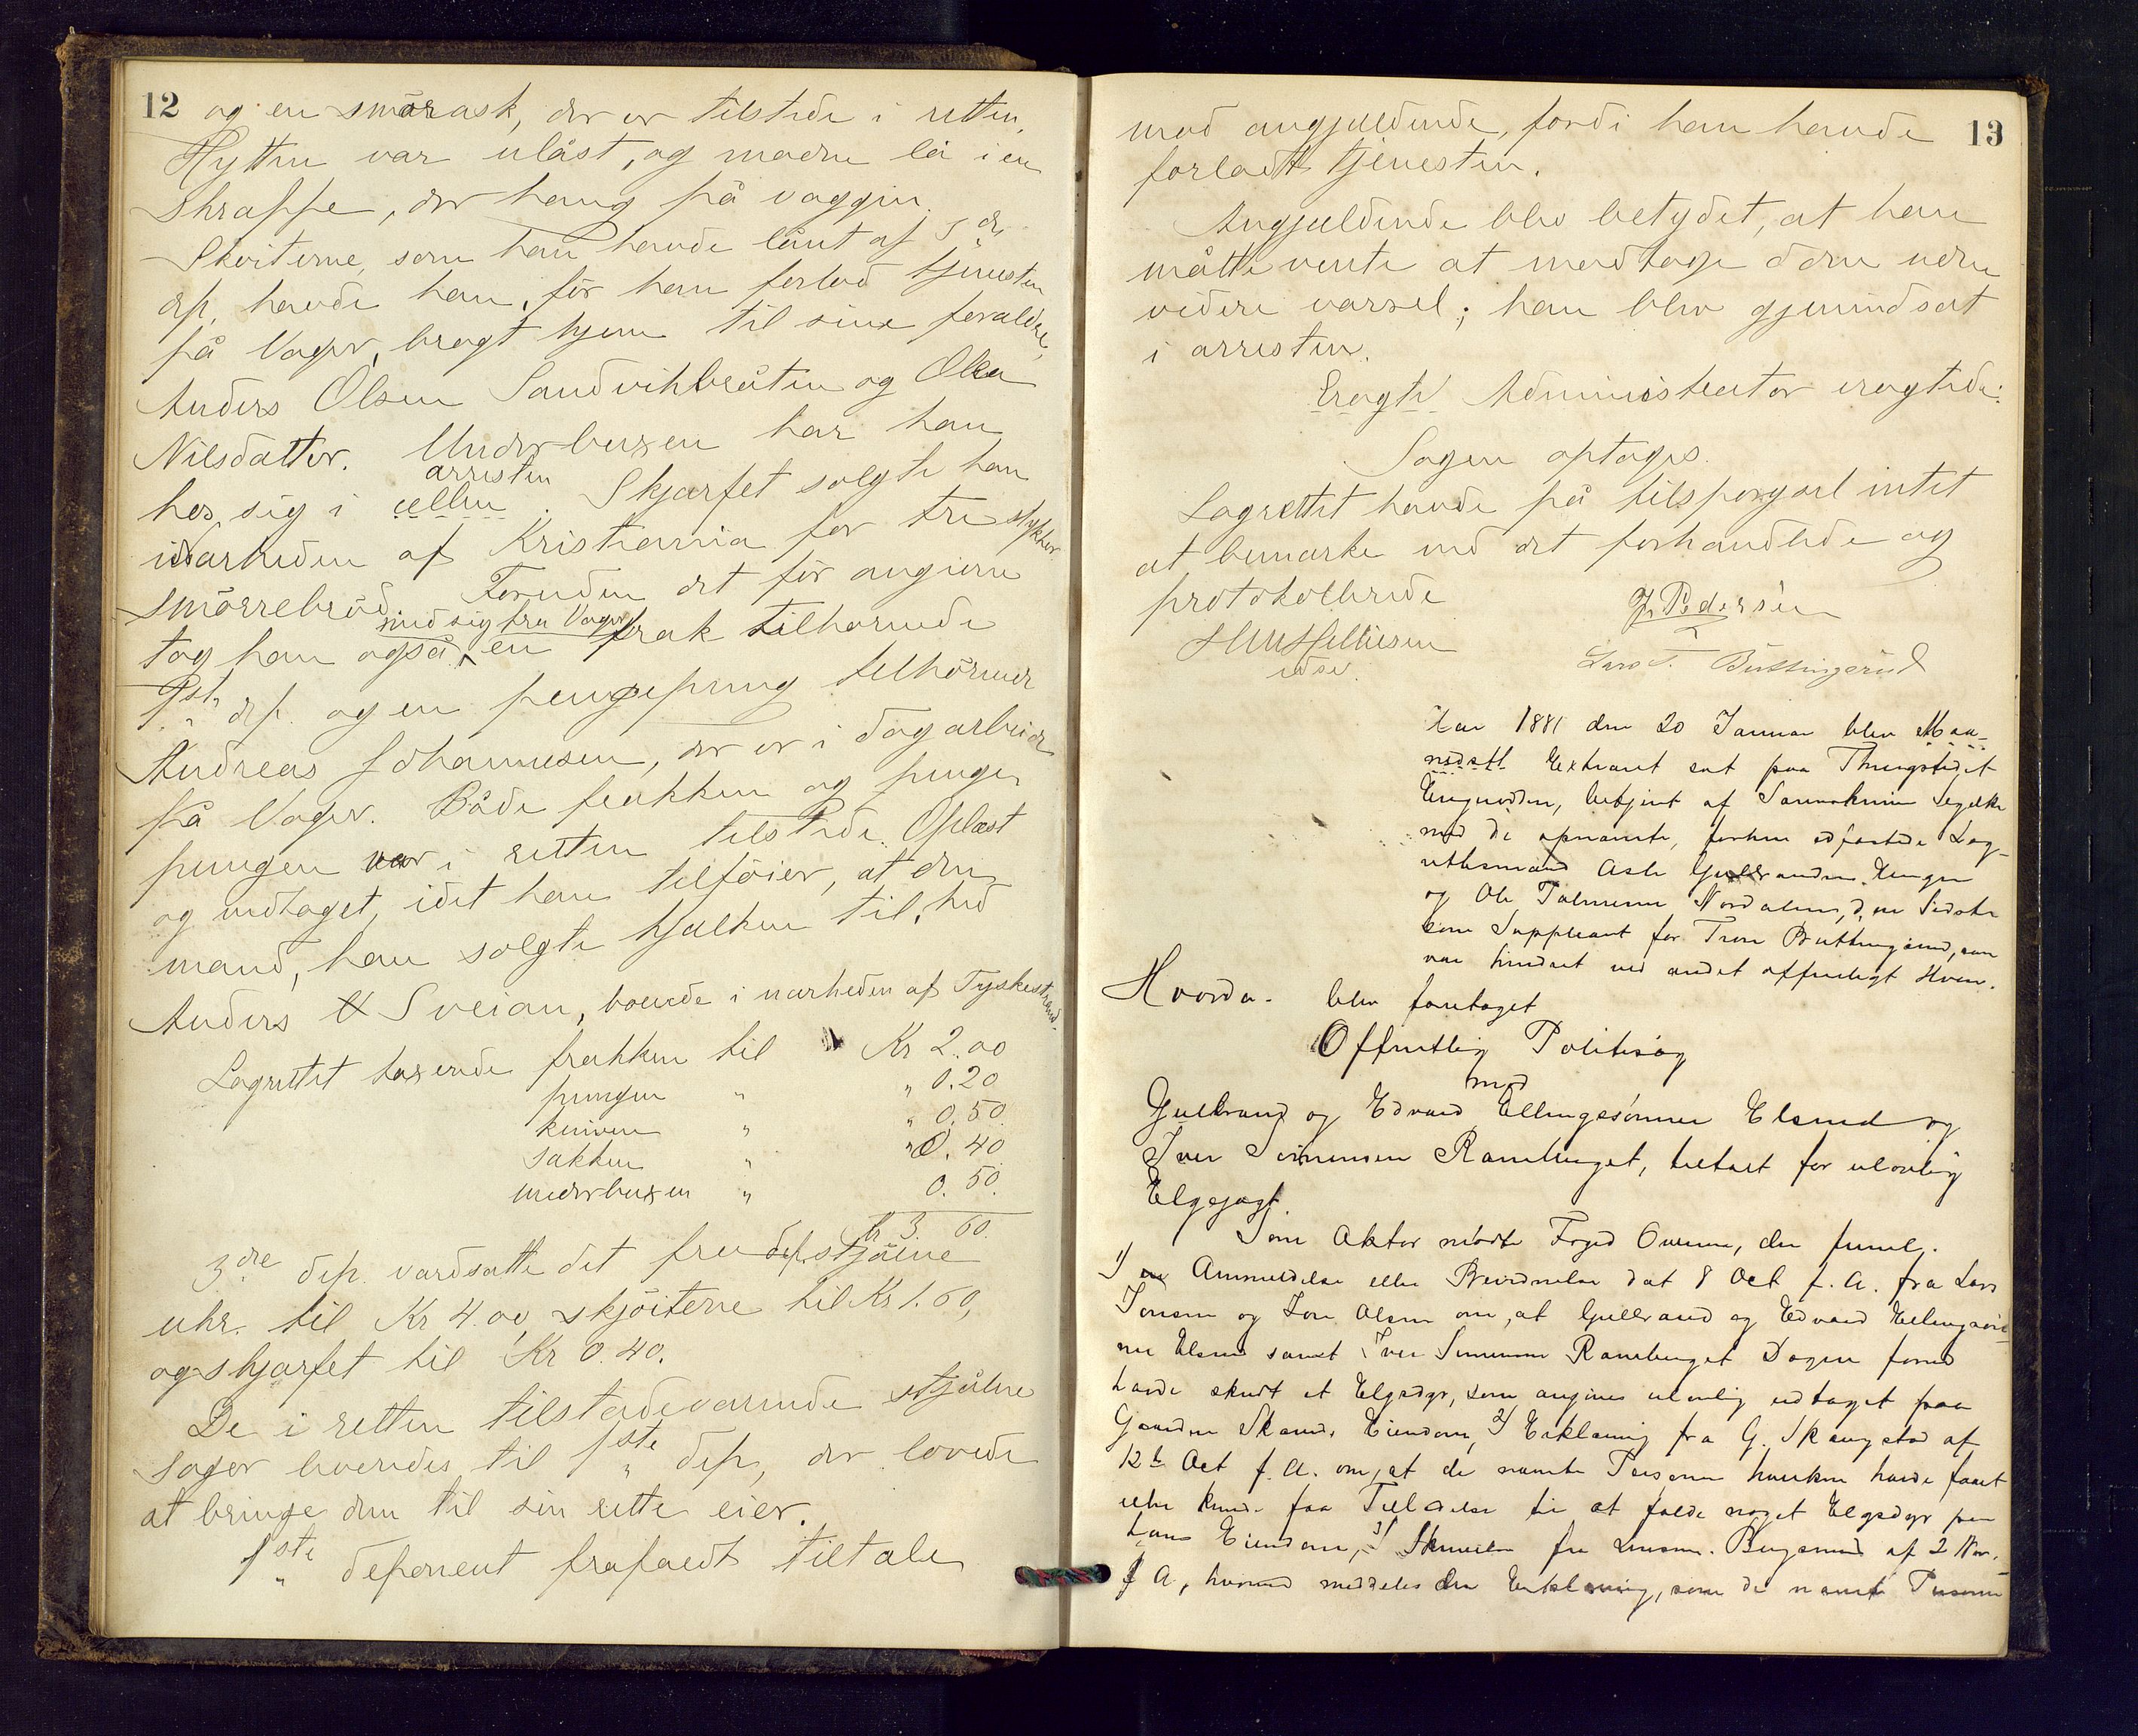 12
og en smørask, der er tilstede i retten.
Hytten var ulåst, og maden lå i en
skræppe, der hang på væggen.
Skøiterne, som han havde lånt af 5 de
dp. havde han, før han forlod tjenesten
på Vager, bragt hjem til sine forældre,
Anders Olsen Sandvikbråten og Olea
Nilsdatter. Underbuxen har han
hos sig i cellen arresten. Skjærfet solgte han
i nærheden af Kristiania for tre stykker
smørrebrød. Foruden det før angivne
tog han også med sig fra Vager en frak tilhørende
1ste dep. og en pengepung tilhørende
Andreas Johannesen, der er i dag arbeider
på Vager. Både frakken og penge
pungen var i retten tilstede. Oplæst
og vedtaget, idet han tilføier, at den
mand, han solgte hjælken til, hed
Anders Sveian, boende i nærheden af Tyskestrand.
Lagrettet taxerede frakken til Kr 2.00
pungen " " 0.20
kniven " " 0.50
sækken " " 0.40
underbuxen " 0.50
Kr 3.60
3die dep. værdsatte det fra dep. stjålne
uhr til Kr 4.00, skjøiterne til Kr 1.60,
og skjærfet til Kr 0.40.
De i retten tilstedeværende stjålne
sager leveredes til 1ste dep, der lovede
at bringe dem til sin rette eier.
1ste deponent frafaldt tiltale
13
mod angjældende, fordi han havde
forladt tjenesten.
Angjældende blev betydet, at han
måtte vente at modtage dom uden
videre varsel; han blev gjenindsat
i arresten.
Eragte Administrator eragtede:
Sagen optages.
Lagrettet havde på tilspørgsel intet
at bemærke ved det forhandlede og
protokollerede
J. Pedersen
Lars T. Buttingsrud
Aar 1881 den 20 Januar blev Maa-
nedstl. Extraret sat paa Thingstedet
med de opnævnte, forhen edfæstede Lag-
rettesmænd Asle Gulbrandsen
og Ole Nordalen, den Sidste
som Suppleant for Buttingsrud, som
var hindret ved andet offentligt Hverv.
Hvorda- blev foretaget
Offentlig Politisag
mod
Gulbrand og Edvard Ellingssønner Elsrud og
Iver Simensen Ramberget, tiltalt for ulovlig
Elgsjagt.
Som Aktor mødte Foged der freml.
1) en Anmeldelse eller Bevidnelse dat 8 Oct f. A. fra Lars
og Olsen om, at Gulbrand og Edvard Ellingssøn-
ner Elsrud samt Iver Simensen Ramberget Dagen forud
havde skudt et Elgsdyr, som angives ulovlig udtaget paa
Gaarden Eiendom, 2) Erklæring fra G. Skaugstad af
12te Oct f. A. om, at de nævnte Personer hverken havde faaet
eller kunde faa Tilladelse til at fælde noget Elgsdyr paa
hans Eiendom, 3) Skrivelse fra Lensm. af 2 Nov.
f A, hvorved meddeles den Erklæring, som de nævnte Personer